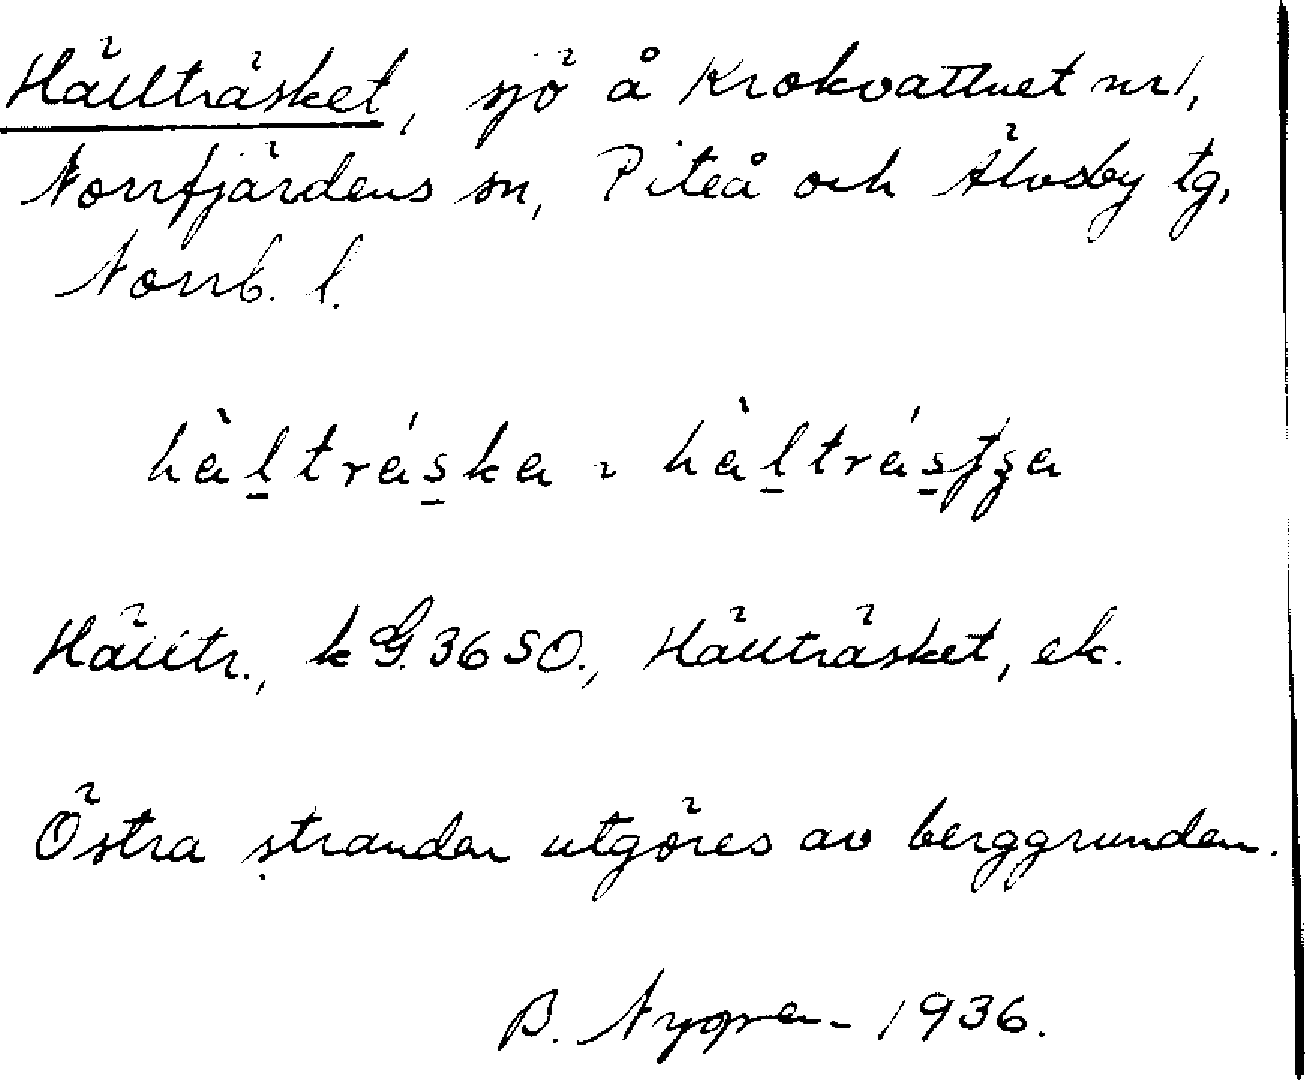 Hällträsket, sjö å Krokvattnet nr 1,
Norrfjärdens sn, Piteå och Älvsby tg,
Norrb. l.
hàl̠trás̠ka, hàl̠trás̠ʃʒa
Hälltr., k G. 36 SO., Hällträsket, ek.
Östra stranden utgöres av berggrunden.
B. Nygren 1936.